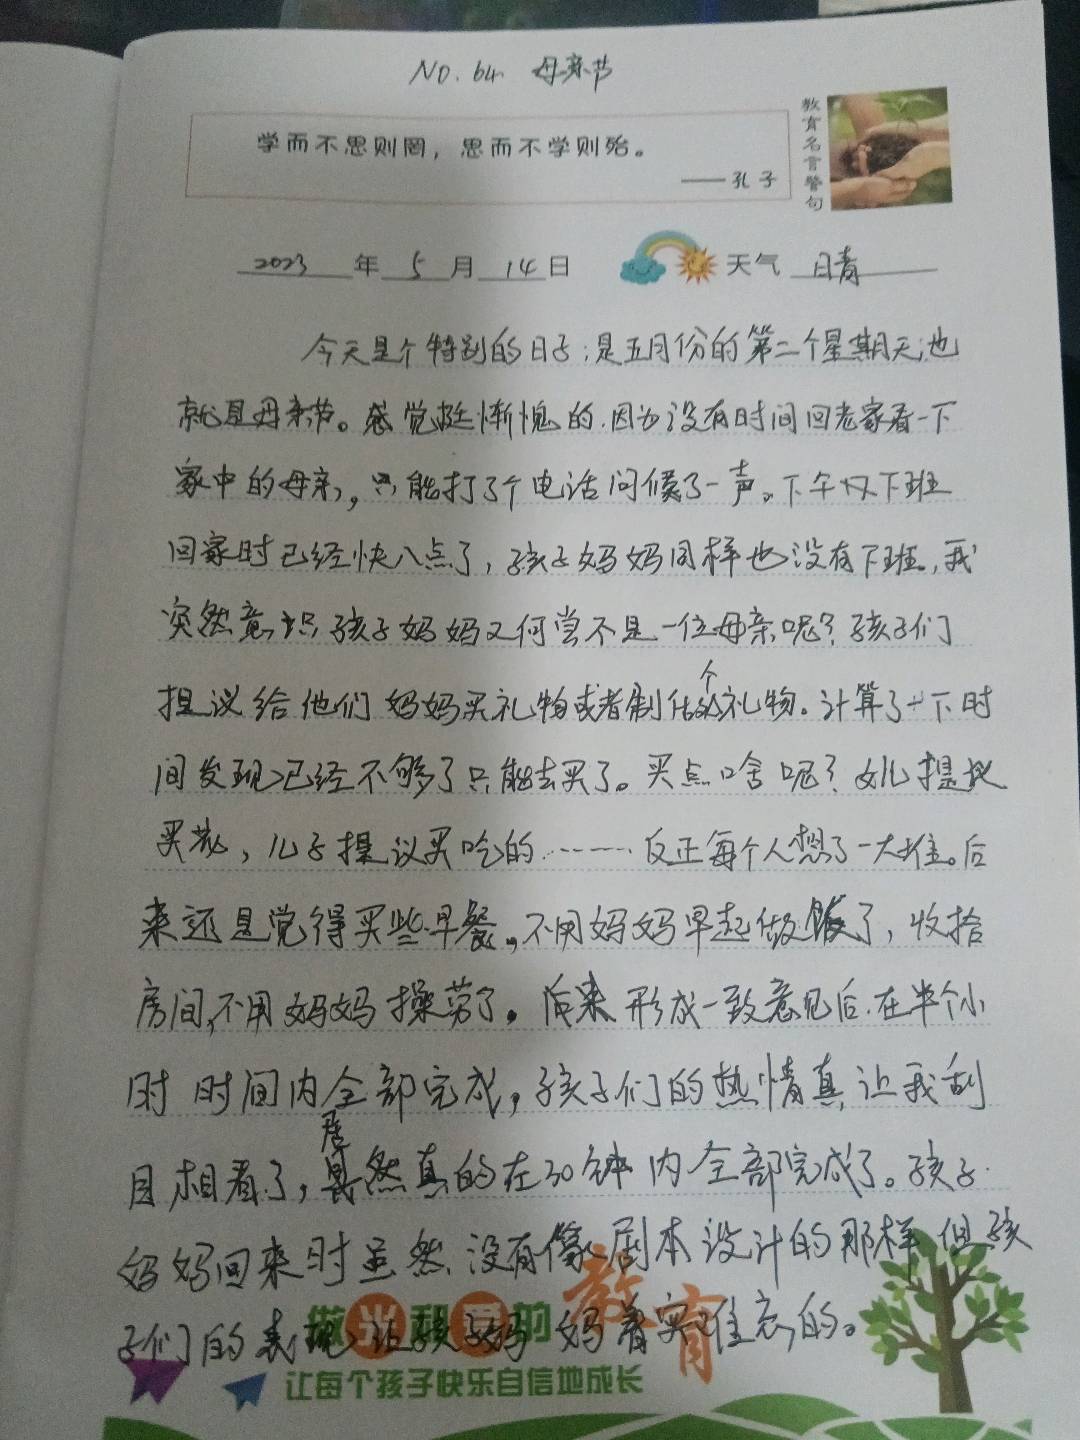 NO. 64 母亲节
学而不思则罔，思而不学则殆。
——孔子
教育名言警句
2023 年 5 月 14 日 天气 晴
今天是个特别的日子；是五月份的第二个星期天；也
就是母亲节。感觉挺惭愧的.因为没有时间回老家看一下
家中的母亲，只能打了个电话问候了一声。下午以下班
回家时已经快八点了，孩子妈妈同样也没有下班，我
突然意识孩子妈妈又何尝不是一位母亲呢？孩子们
提议给他们妈妈买礼物或者制做个礼物。计算了一下时
间发现已经不够了只能去买了。买点啥呢？女儿提议
买花，儿子提议买吃的……反正每个人想了一大堆。后
来还是觉得买些早餐，不用妈妈早起做饭了，收拾
房间，不用妈妈操劳了。后来形成一致意见后.在半个小
时 时间内全部完成，孩子们的热情真让我刮
目相看了，居然真的在30分钟内全部完成了。孩子
妈妈回来时虽然没有像剧本设计的那样但孩
子们的表现让孩子妈妈着实难忘的。
做光和爱的教育
让每个孩子快乐自信地成长